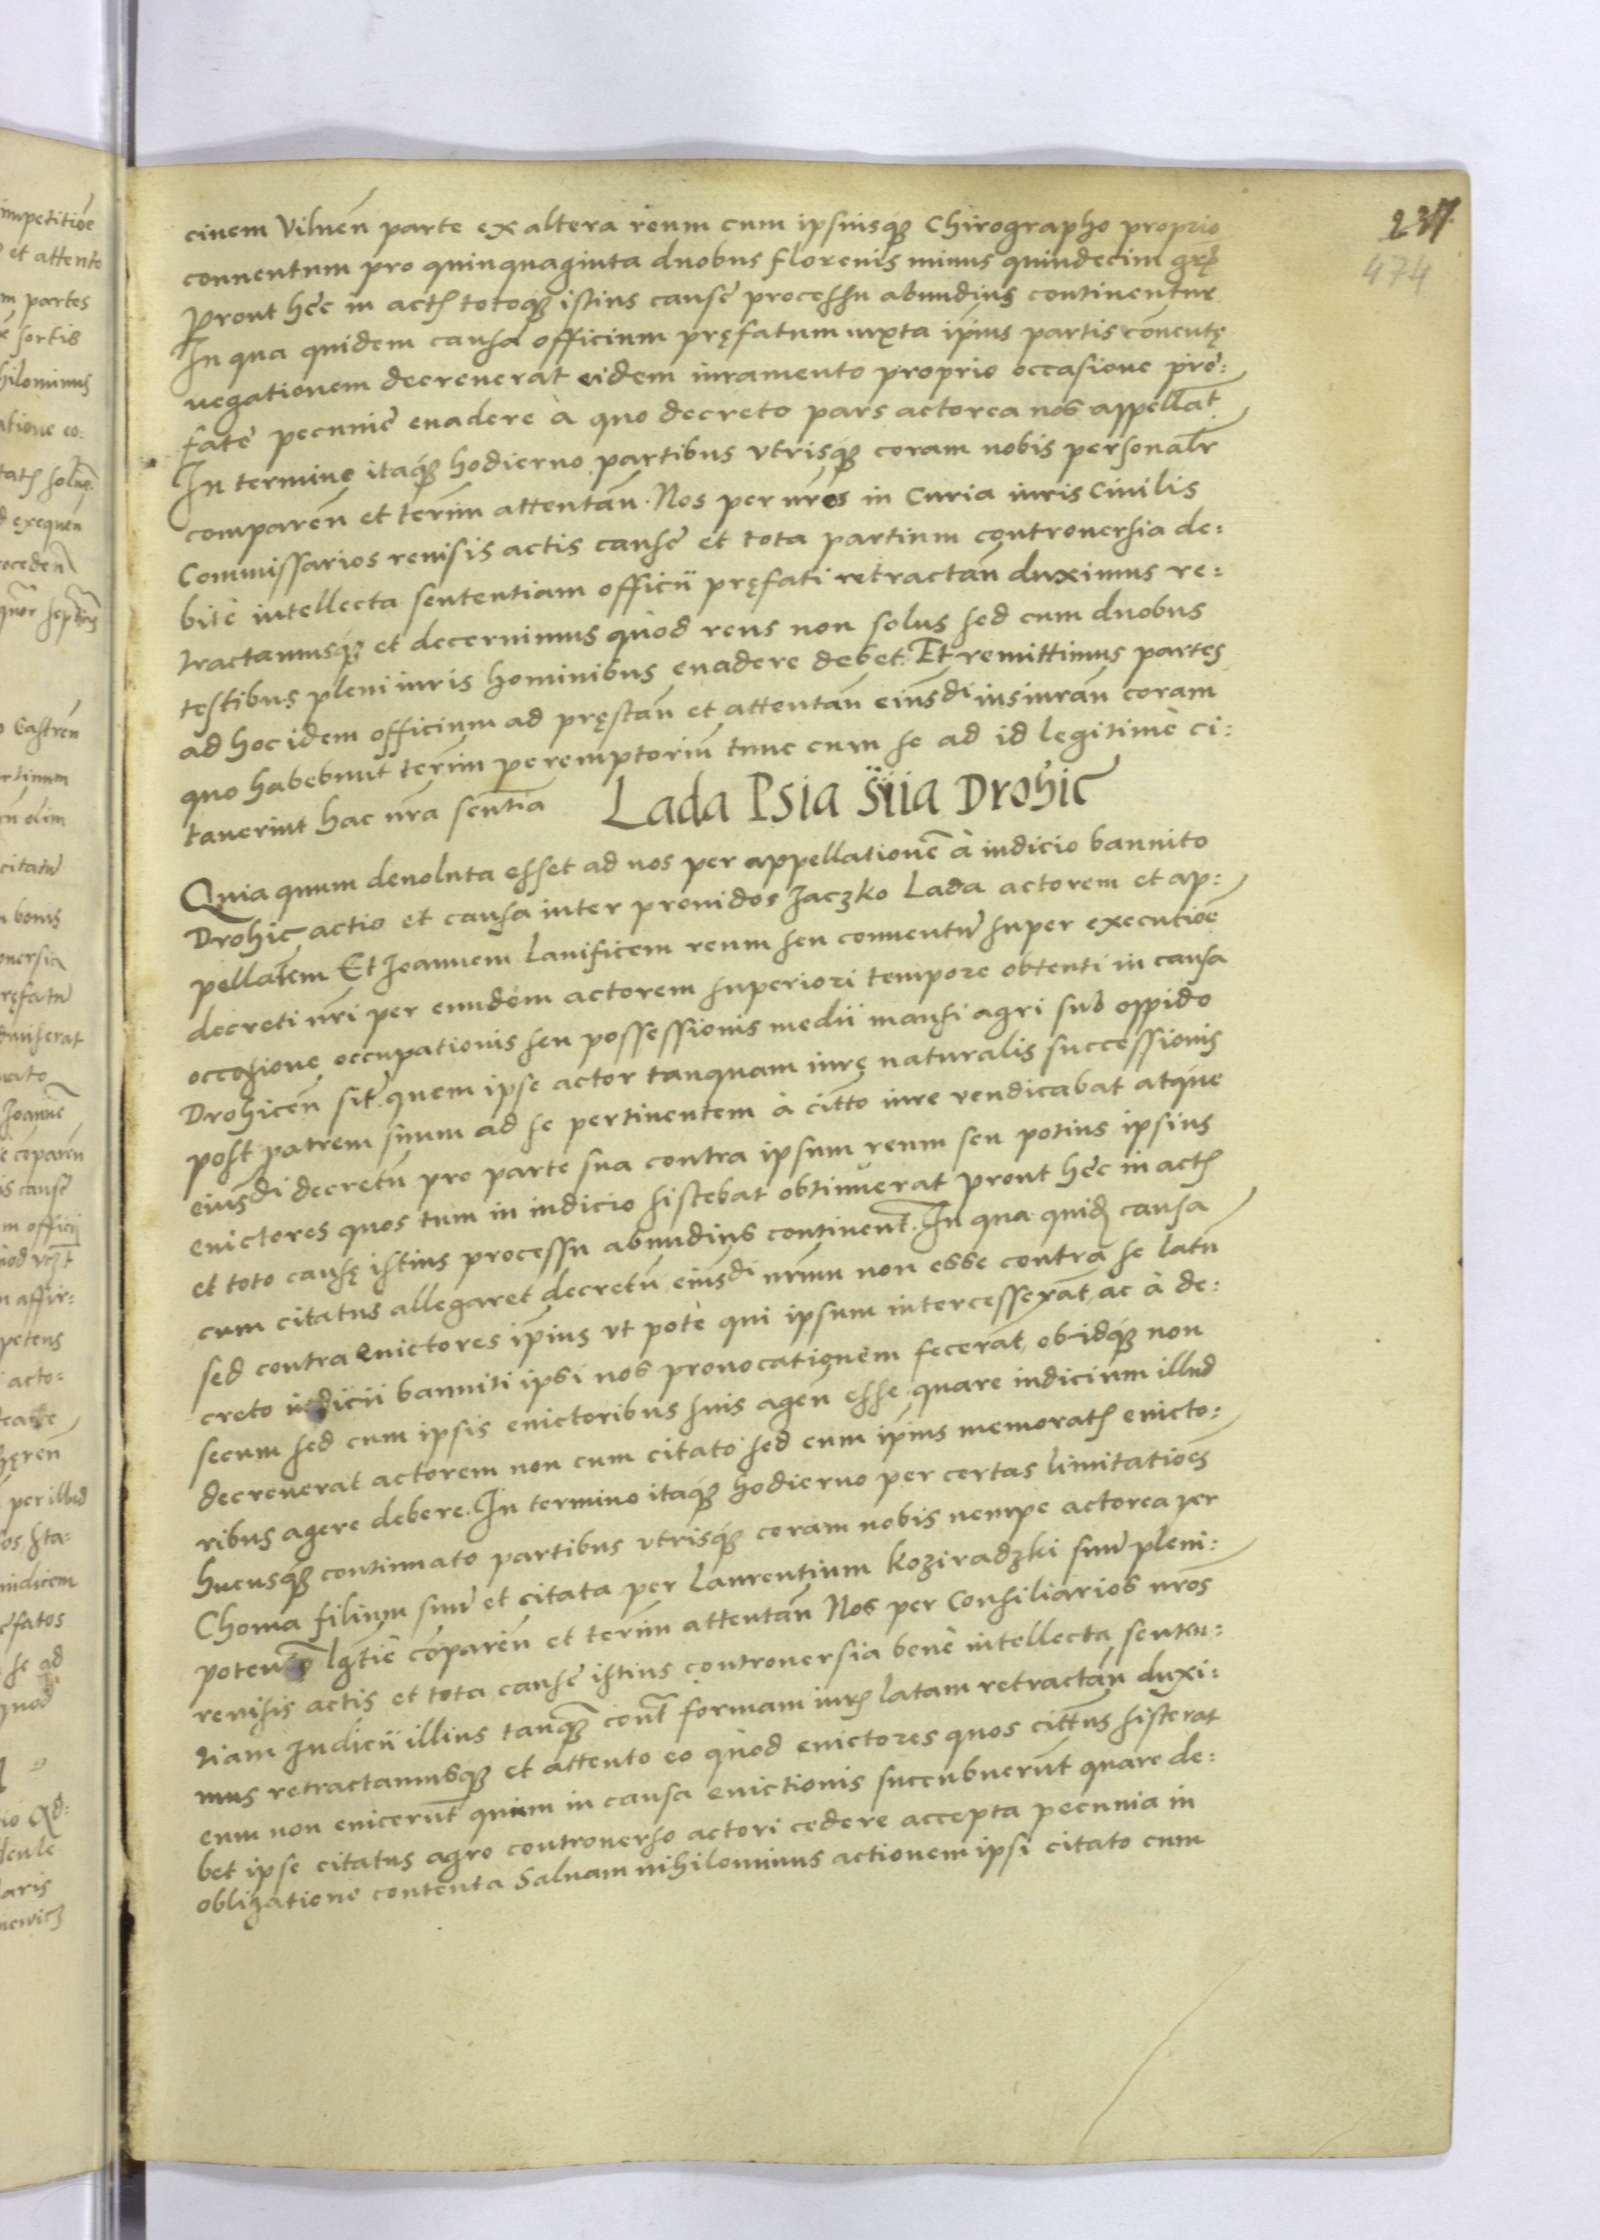 237.
474
ciuem Vilneñ parte ex altera reum cum ipsiusq; Chirographo proprio
conuentum pro quinquaginta duobus florenis minus quindecim
Prout hęc in actis totoq; istius causę processu abundius continentur
In qua quidem causa officium pręfatum iuxta ip̄ius partis cōuentę
negationem decreuerat eidem iuramento proprio occasione prę:
fatę pecunię euadere à quo decreto pars actorea nos appellat̄
In termino itaq; hodierno partibus vtrisq; coram nobis personalr̄
compareñ et term̄ attentañ. Nos per nr̄os in Curia iuris Ciuilis
Commissarios reuisis actis causę et tota partium controuersia de:
bitè intellecta sententiam officii pręfati retractañ duximus re:
tractamusq; et decernimus quòd reus non solus sed cum duobus
testibus pleni iuris hominibus euadere debet. Et remittimus partes
ad hoc idem officium ad pręstañ et attentañ eiusdi iusiurañ coram
quo habebunt term̄ peremptoriū tunc cum se ad id legitimè ci:
tauerint hac nr̄a sentīa
Lada Psia Siia Drohic̄
Quia quum deuoluta esset ad nos per appellationē à iudicio bannito
Drohic̄ actio et causa inter prouidos Jaczko Lada actorem et ap:
pellatem Et Joannem Lanificem reum seu conuentū super executiōe
decreti nr̄i per eundem actorem superiori tempore obtenti in causa
occasione occupationis seu possessionis medii mansi agri sub oppido
Drohiceñ sit̄ quem ipse actor tanquam iurę naturalis successionis
post patrem suum ad se pertinentem à citto iure vendicabat atque
eiusdi decretū pro parte sua contra ipsum reum seu potius ipsius
euictores quos tum in iudicio sistebat obtinuerat prout hęc in actis
et toto causę istius processu abundius continent̄. In qua quid; causa
cum citatus allegaret decretū eiusdi nr̄um non esse contra se latū
sed contra euictores ip̄ius vt pote qui ipsum intercesserāt ac à de:
creto iudicii banniti ipsi nos prouocationem fecerāt, ob idq; non
secum sed cum ipsis euictoribus suis ageñ esse quare iudicium illud
decreuerat actorem non cum citato sed cum ip̄ius memoratis euicto:
ribus agere debere. In termino itaq; hodierno per certas limitatiōes
hucusq; continuato partibus vtrisq; coram nobis nempe actorea per
Choma filium suū et citata per Laurentium Koziradzki suū pleni:
potentē lgt̄ie cōpareñ et term̄ attentañ Nos per Consiliarios nr̄os
reuisis actis et tota causę istius controuersia benè intellecta senten:
tiam Iudicii illius tanq; cont̄ formam iuris latam retractañ duxi:
mus retractamusq; et attento eo quòd euictores quos cittus sisterat
eum non euicerūt quum in causa euictionis succubuerūt quare de:
bet ipse citatus agro controuerso actori cedere accepta pecunia in
obligatione contenta Saluam nihilominus actionem ipsi citato cum